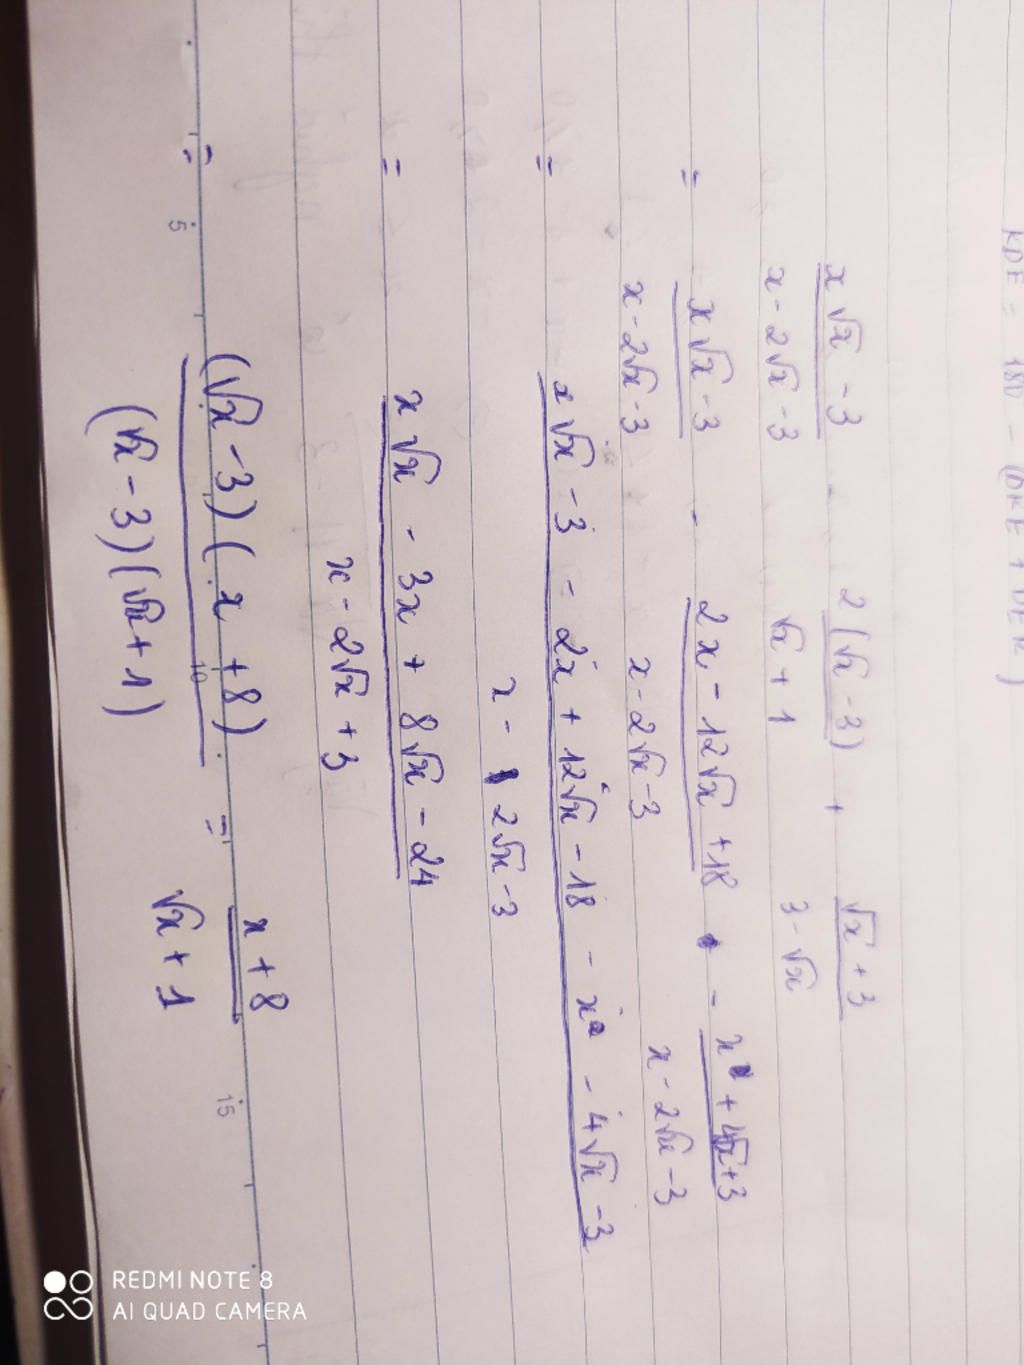 KDE = 180 - (DKE + DEK)
x√x - 3 - 2(√x - 3) + √x + 3
x - 2√x - 3 √x + 1 3 - √x
= x√x - 3 - 2x - 12√x + 18 - x + 4√x + 3
x - 2√x - 3 x - 2√x - 3 x - 2√x - 3
= x√x - 3 - 2x + 12√x - 18 - x - 4√x - 3
x - 2√x - 3
= x√x - 3x + 8√x - 24
x - 2√x + 3
= (√x - 3)(x + 8) = x + 8
(√x - 3)(√x + 1) √x + 1
5 10 15
REDMI NOTE 8
AI QUAD CAMERA